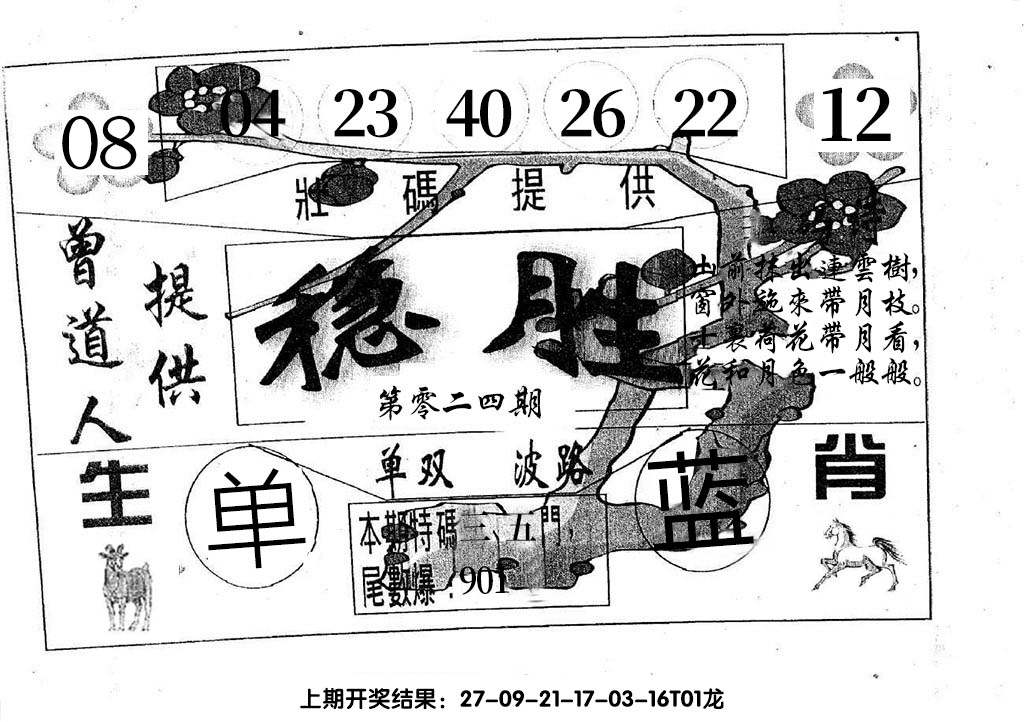 08 04 23 40 26 22 12
壯碼提供
特
曾道人
提供
稳胜
第零二四期
山前抹出連雲樹，
窗外施來帶月枝。
士裏荷花帶月看，
花和月色一般般。
单双 波路
生肖
单
蓝
本期特碼三、五門，
尾數爆：901
上期开奖结果：27-09-21-17-03-16T01龙